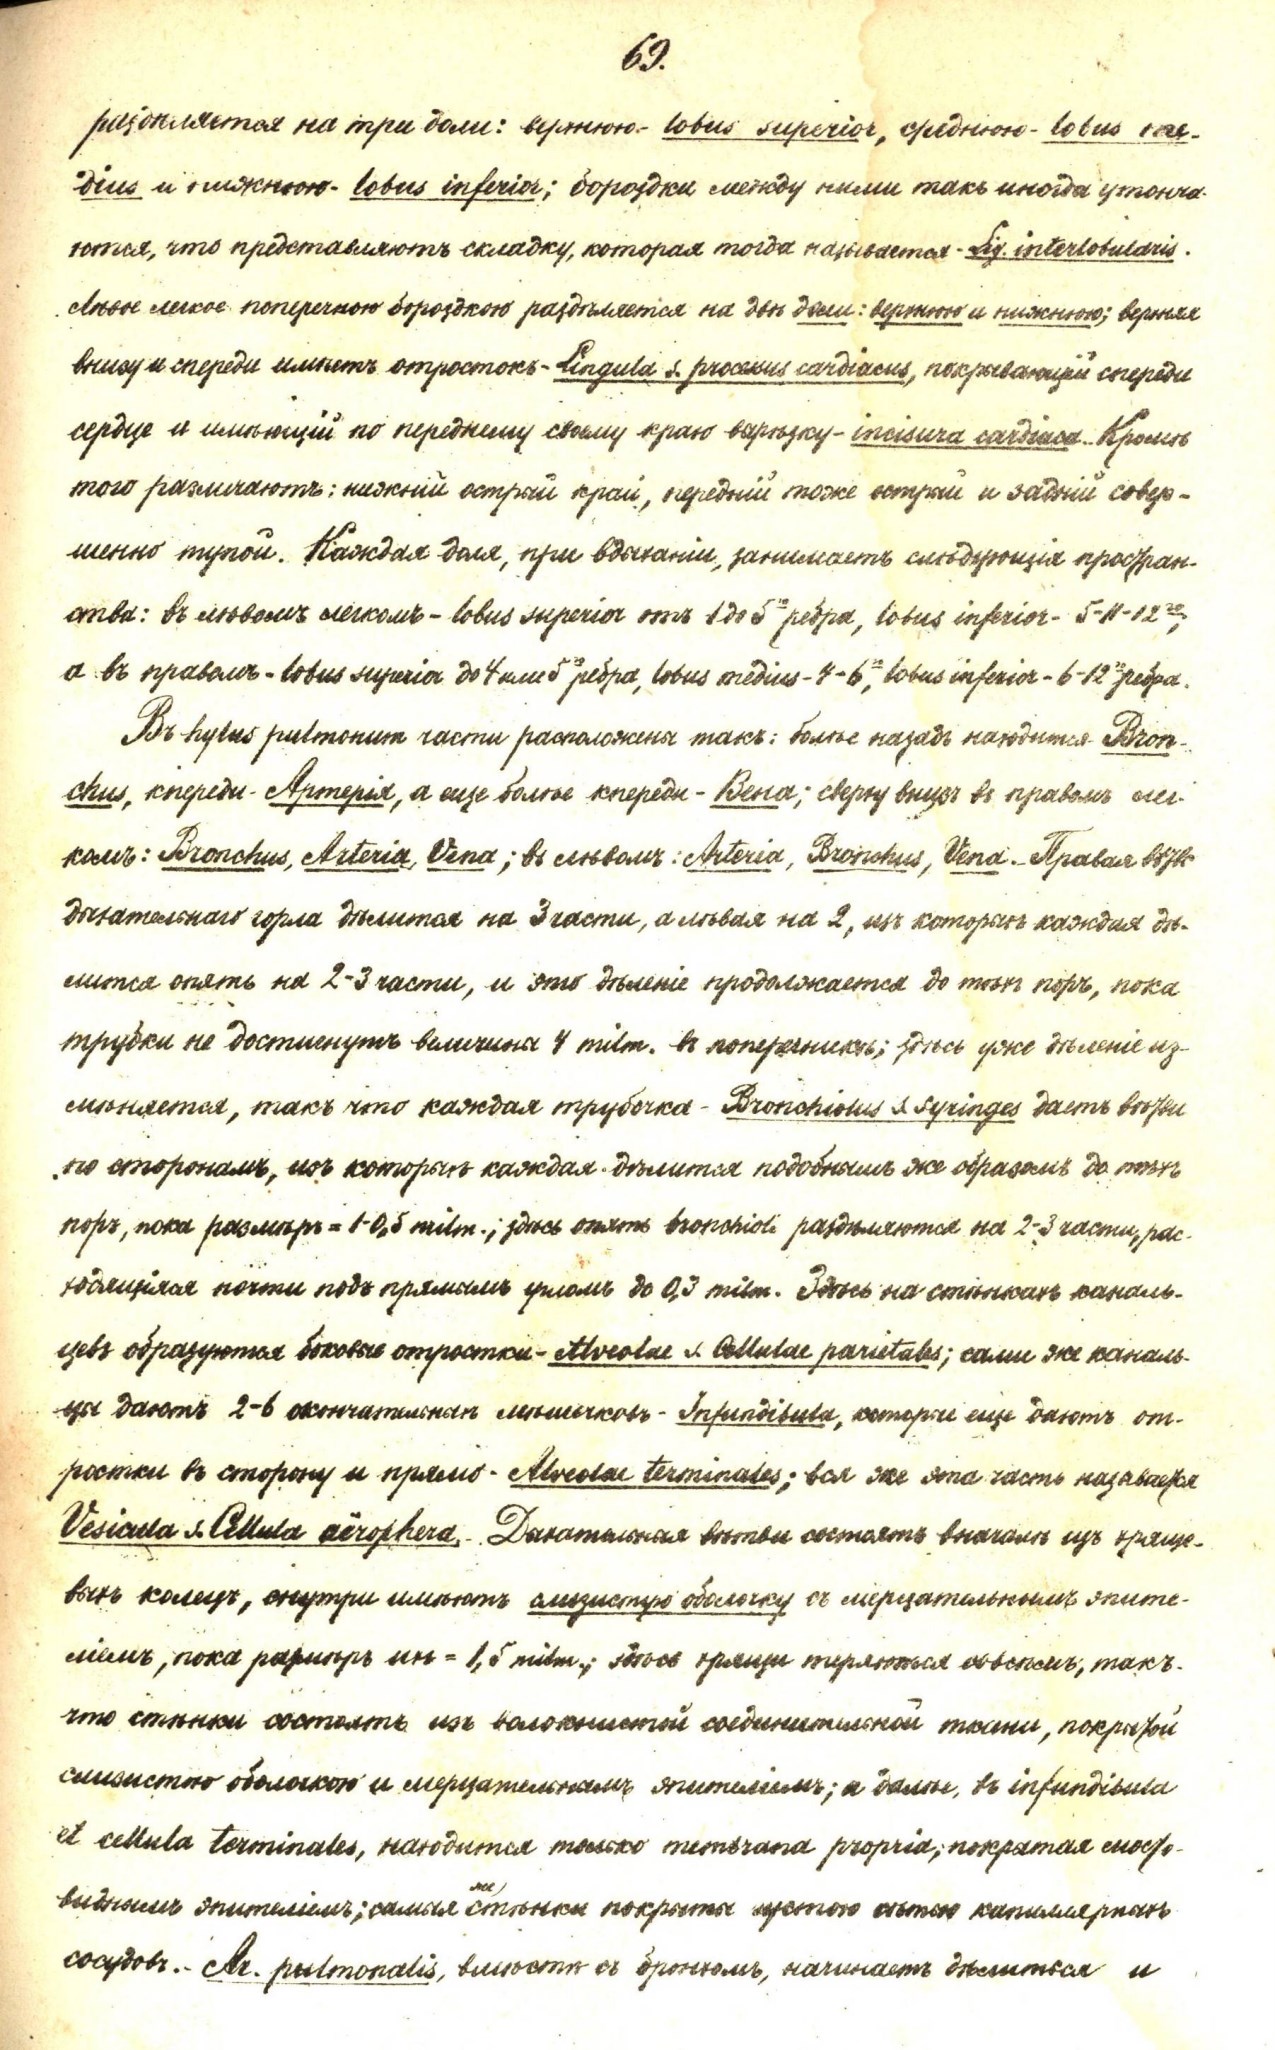 69.
раздѣляется на три доли: верхнюю - lobus superior, среднюю - lobus me-
dius и нижнюю - lobus inferior; бороздки между ними такъ иногда утонча-
ются, что представляютъ складку, которая тогда называется - Lig. interlobularis.
Лѣвое легкое поперечною бороздкою раздѣляется на двѣ доли: верхнюю и нижнюю; верхняя
внизу и спереди имѣетъ отростокъ - Lingula s. processus cardiacus, покрывающій спереди
сердце и имѣющій по переднему своему краю вырѣзку - incisura cardiaca. Кромѣ
того различаютъ: нижній острый край, передній тоже острый и задній совер-
шенно тупой. Каждая доля, при вдыханіи, занимаетъ слѣдующія простран-
ства: въ лѣвомъ легкомъ - lobus superior отъ 1 до 5го ребра, lobus inferior - 5-11-12го,
а въ правомъ - lobus superior до 4 или 5го ребра, lobus medius - 4-6го, lobus inferior - 6-12го ребра.
Въ hylus pulmonum части расположены такъ: болѣе назадъ находится Bron-
chus, кпереди - Артерія, а еще болѣе кпереди - Вена; сверху внизъ въ правомъ лег-
комъ: Bronchus, Arteria, Vena; въ лѣвомъ: Arteria, Bronchus, Vena. - Правая вѣтвь
дыхательнаго горла дѣлится на 3 части, а лѣвая на 2, изъ которыхъ каждая дѣ-
лится опять на 2-3 части, и это дѣленіе продолжается до тѣхъ поръ, пока
трубки не достигнутъ величины 4 milm. въ поперечникѣ; здѣсь уже дѣленіе из-
мѣняется, такъ что каждая трубочка - Bronchiolus s. Syringes даетъ вѣтви
по сторонамъ, изъ которыхъ каждая дѣлится подобнымъ же образомъ до тѣхъ
поръ, пока размѣръ = 1-0,5 milm.; здѣсь опять bronchioli раздѣляются на 2-3 части, рас-
ходящіяся почти подъ прямымъ угломъ до 0,3 milm. Здѣсь на стѣнкахъ каналь-
цевъ образуются боковые отростки - Alveolae s. Cellulae parietales; сами же каналь-
цы даютъ 2-6 окончательныхъ мѣшечковъ - Infundibula, которые еще даютъ от-
ростки въ сторону и прямо - Alveolae terminales; вся же эта часть называется
Vesicula s. Cellula aëropherа. - Дыхательныя вѣтви состоятъ вначалѣ изъ хряще-
выхъ колецъ, снутри имѣютъ слизистую оболочку съ мерцательнымъ эпите-
ліемъ, пока размѣръ ихъ = 1,5 milm.; здѣсь хрящи теряются совсѣмъ, такъ
что стѣнки состоятъ изъ волокнистой соединительной ткани, покрытой
слизистою оболочкою и мерцательнымъ эпителіемъ; а далѣе, въ infundibula
et cellula terminales, находится только membrana propria, покрытая мосто-
виднымъ эпителіемъ; самыя же стѣнки покрыты густою сѣтью капиллярныхъ
сосудовъ. - Ar. pulmonalis, вмѣстѣ съ бронхомъ, начинаетъ дѣлиться и